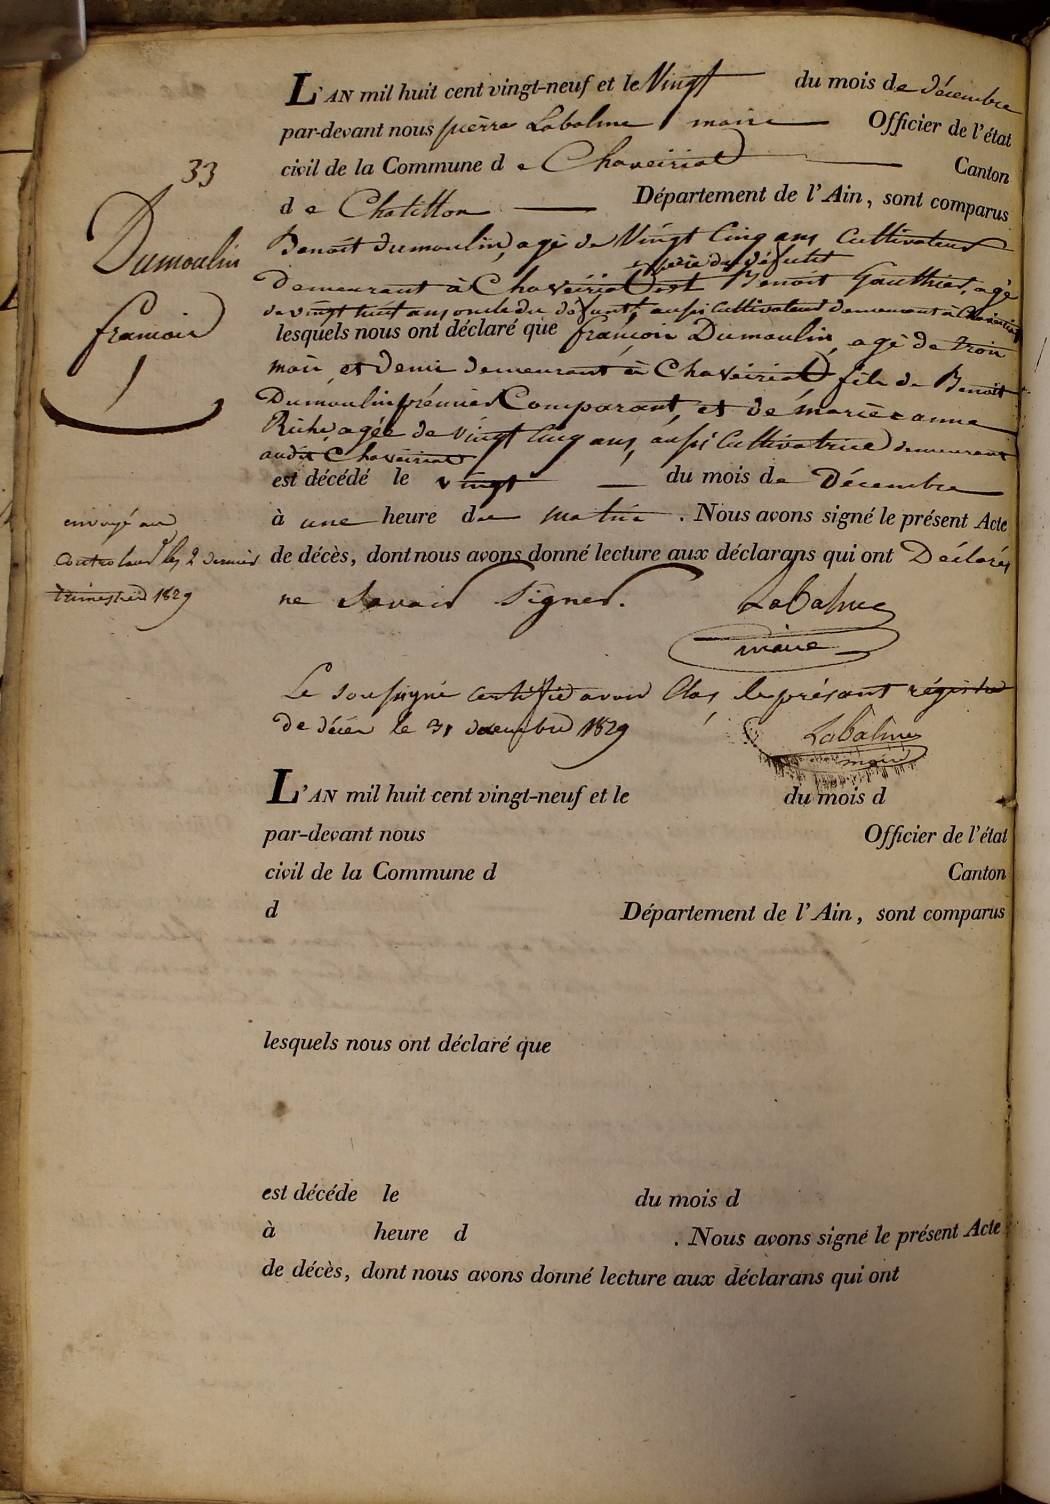 33
Dumoulin
françois
envoyé au
controleur les 2 dernier
trimestres 1829
L'AN mil huit cent vingt-neuf et le Vingt du mois de décembre
par-devant nous pièrre Labalme maire Officier de l'état
civil de la Commune de Chaveiriat Canton
de Chatillon Département de l'Ain, sont comparus
Benoit dumoulin, agé de Vingt Cinq ans Cultivateur
père du défunt
demeurant à Chaveiriat et Benoit Gauthier, agé
de vingt huit ans oncle du défunt, aussi Cultivateur demeurant à Chaveiriat
lesquels nous ont déclaré que françois Dumoulin, agé de trois
mois et demi demeurant à Chaveiriat fils de Benoit
Dumoulin prémier Comparant, et de marie anne
Riche agée de vingt cinq ans, aussi Cultivatrice demeurant
audit Chaveiriat
est décédé le vingt du mois de Décembre
à une heure du matin. Nous avons signé le présent Acte
de décès, dont nous avons donné lecture aux déclarans qui ont Déclarés
ne savoir signer. Labalme
maire
Le soussigné certifie avoir Clos le présant régistre
de décès le 31 décembre 1829 Labalme
maire
L'AN mil huit cent vingt-neuf et le du mois d
par-devant nous Officier de l'état
civil de la Commune d Canton
d Département de l'Ain, sont comparus
lesquels nous ont déclaré que
est décéde le du mois d
à heure d . Nous avons signé le présent Acte
de décès, dont nous avons donné lecture aux déclarans qui ont